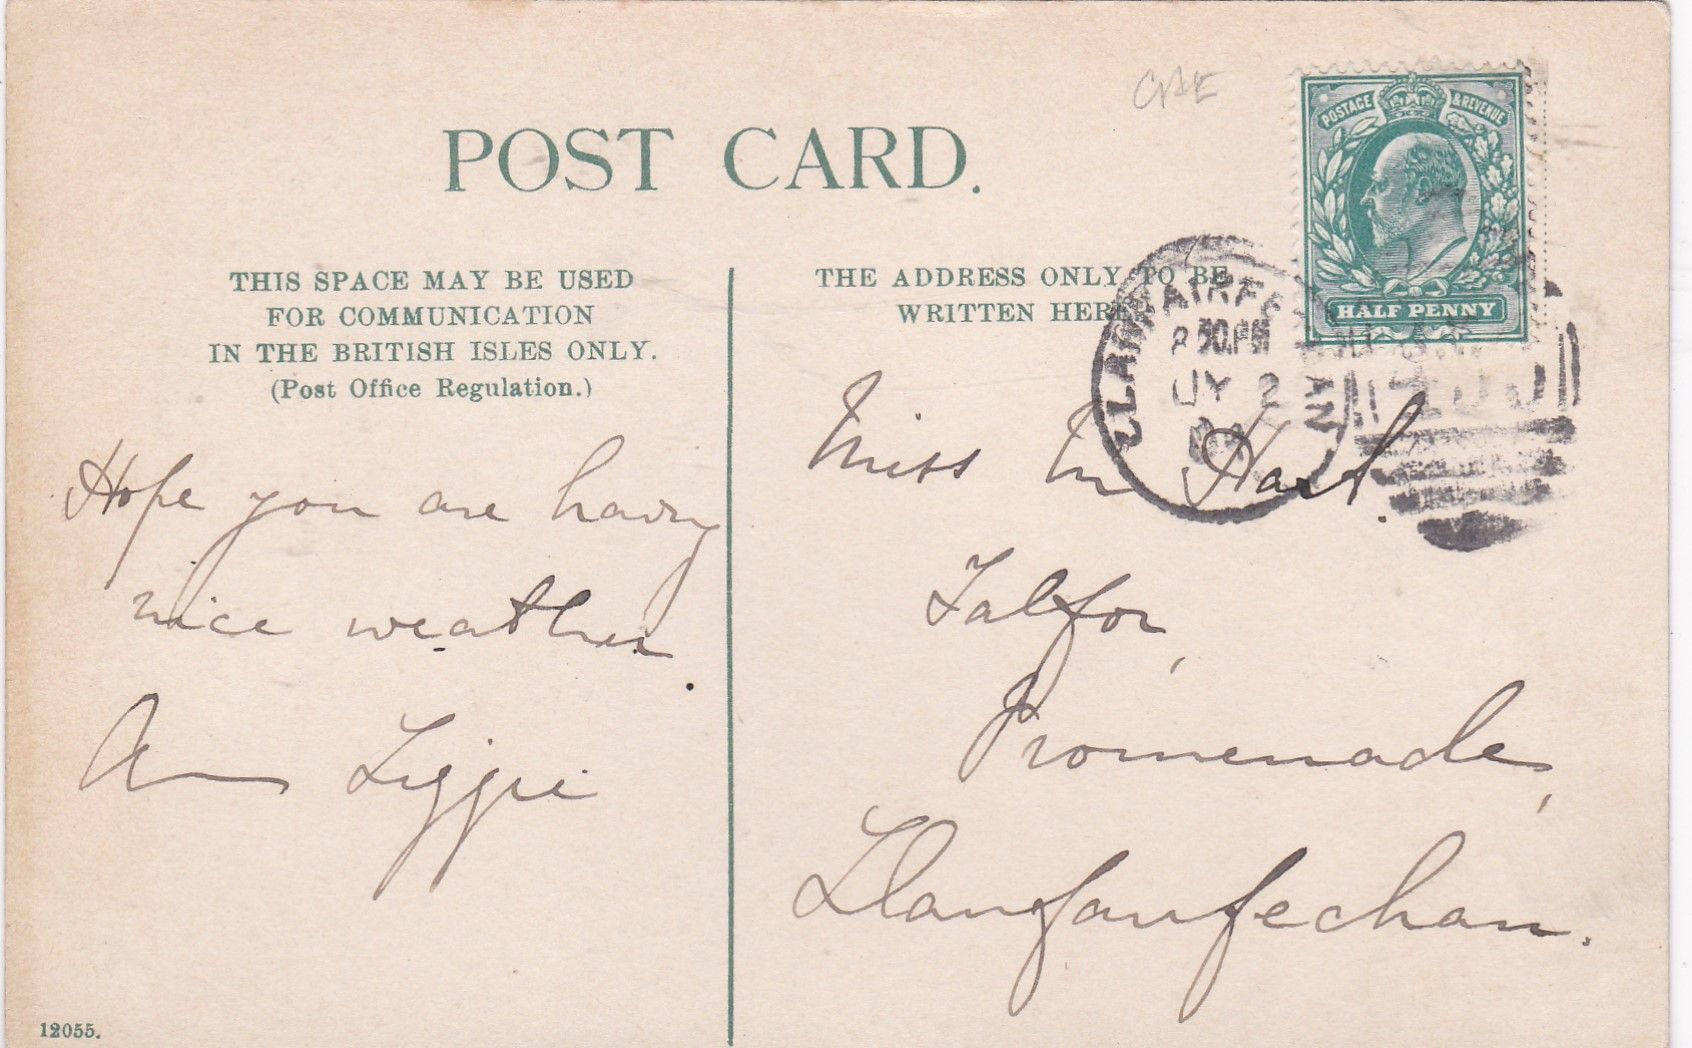 POST CARD.
POSTAGE & REVENUE
HALF PENNY
THIS SPACE MAY BE USED
FOR COMMUNICATION
IN THE BRITISH ISLES ONLY.
(Post Office Regulation.)
THE ADDRESS ONLY TO BE
WRITTEN HERE
8 30.PM
JY 2
Hope you are having
nice weather.
Lizzie
Miss M Hart.
Talfor,
Promenade,
Llanfanfechan.
12055.